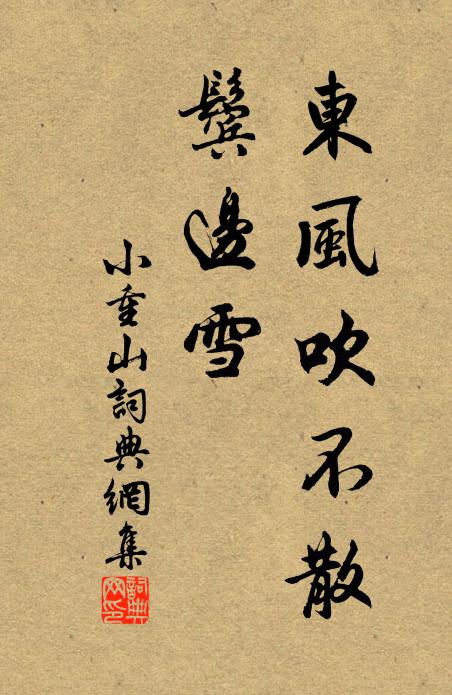 東風吹不散
鬓邊雪
小重山詞典網集
詞典網印